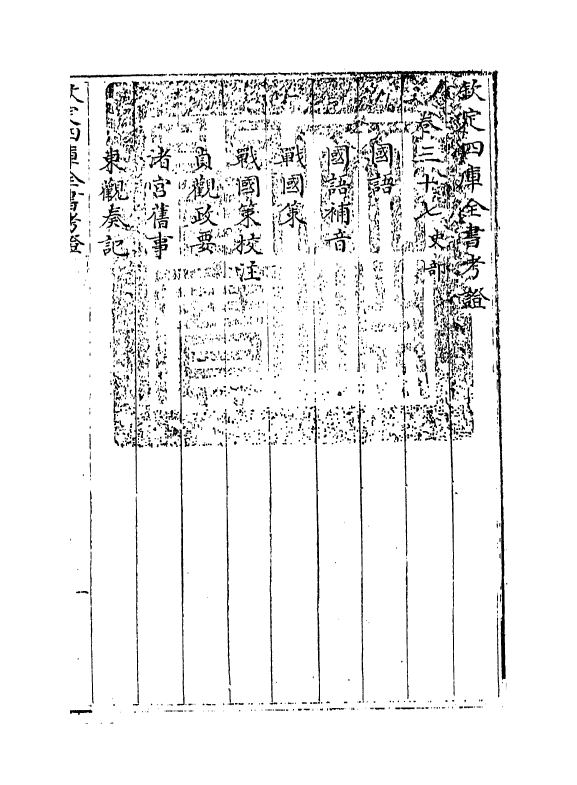 欽定四庫全書考證
卷三十七 史部
國語
國語補音
戰國策
戰國策校注
貞觀政要
渚宮舊事
東觀奏記
欽定四庫全書考證
一